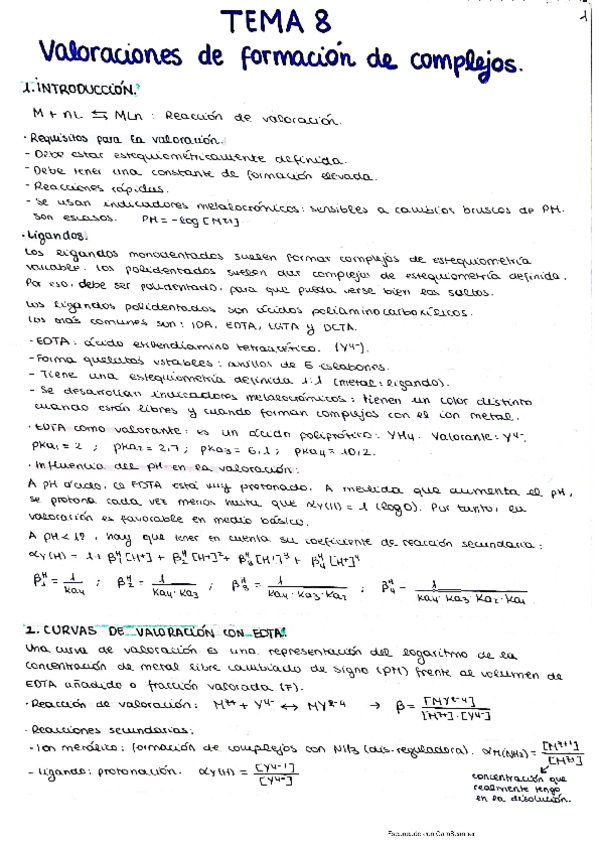 1
TEMA 8
Valoraciones de formación de complejos.
1. INTRODUCCIÓN.
M + nL ⇆ MLn : Reacción de valoración.
· Requisitos para la valoración.
- Debe estar estequiométricamente definida.
- Debe tener una constante de formación elevada.
- Reacciones rápidas.
- Se usan indicadores metalocrómicos: sensibles a cambios bruscos de PM.
son escasos. PM = -log [M+]
· Ligandos.
Los ligandos monodentados suelen formar complejos de estequiometría
variable. Los polidentados suelen dar complejos de estequiometría definida.
Por eso, debe ser polidentado, para que pueda verse bien los saltos.
Los ligandos polidentados son ácidos poliaminocarboxílicos.
Los más comunes son: IDA, EDTA, EGTA y DCTA.
· EDTA: ácido etilendiamino tetraacético. (Y4-).
- Forma quelatos estables: anillos de 5 eslabones.
- Tiene una estequiometría definida 1:1 (metal:ligando).
- Se desarrollan indicadores metalocrómicos: tienen un color distinto
cuando están libres y cuando forman complejos con el ion metal.
· EDTA como valorante: es un ácido poliprótico: YH4. Valorante: Y4-.
pKa1 = 2 ; pKa2 = 2,7 ; pKa3 = 6,1 ; pKa4 = 10,2.
· Influencia del pH en la valoración:
A pH ácido, el EDTA está muy protonado. A medida que aumenta el pH,
se protona cada vez menos hasta que αY(H) = 1 (log 0). Por tanto, la
valoración es favorable en medio básico.
A pH < 12, hay que tener en cuenta su coeficiente de reacción secundaria:
αY(H) = 1 + β1H [H+] + β2H [H+]2 + β3H [H+]3 + β4H [H+]4
β1H = 1/Ka4 ; β2H = 1/Ka4·Ka3 ; β3H = 1/Ka4·Ka3·Ka2 ; β4H = 1/Ka4·Ka3·Ka2·Ka1
2. CURVAS DE VALORACIÓN CON EDTA.
Una curva de valoración es una representación del logaritmo de la
concentración de metal libre cambiado de signo (PM) frente al volumen de
EDTA añadido o fracción valorada (F).
· Reacción de valoración: Mz+ + Y4- ↔ MYz-4 → β = [MYz-4]/[Mz+]·[Y4-]
· Reacciones secundarias:
- Ion metálico: formación de complejos con NH3 (dis. reguladora). αM(NH3) = [Mz+']/[Mz+]
- Ligando: protonación. αY(H) = [Y4-']/[Y4-]
concentración que
realmente tengo
en la disolución.
Escaneado con CamScanner